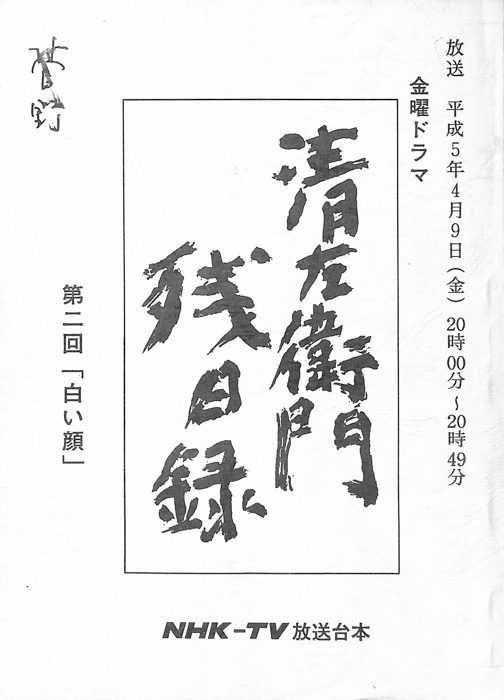 放送 平成5年4月9日(金) 20時00分～20時49分
金曜ドラマ
清左衛門
残日録
第二回「白い顔」
菅野
NHK-TV 放送台本